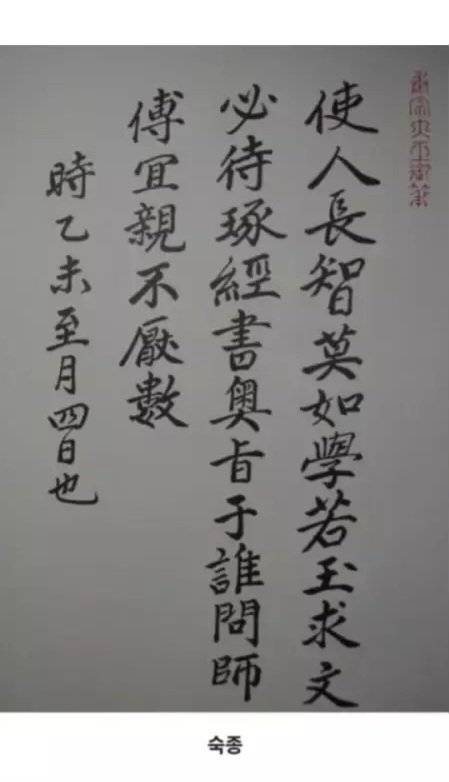 使人長智莫如學若玉求文
必待琢經書奧旨于誰問師
傅宜親不厭數
時乙未至月四日也
숙종